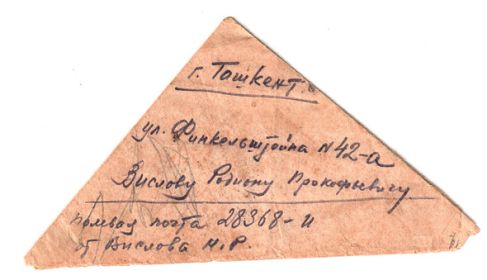 г. Ташкент.
ул. Финкельштейна N 42-а
Вислову Родиону Прокофьевичу
полевая почта 28368-и
от Вислова Н.Р.